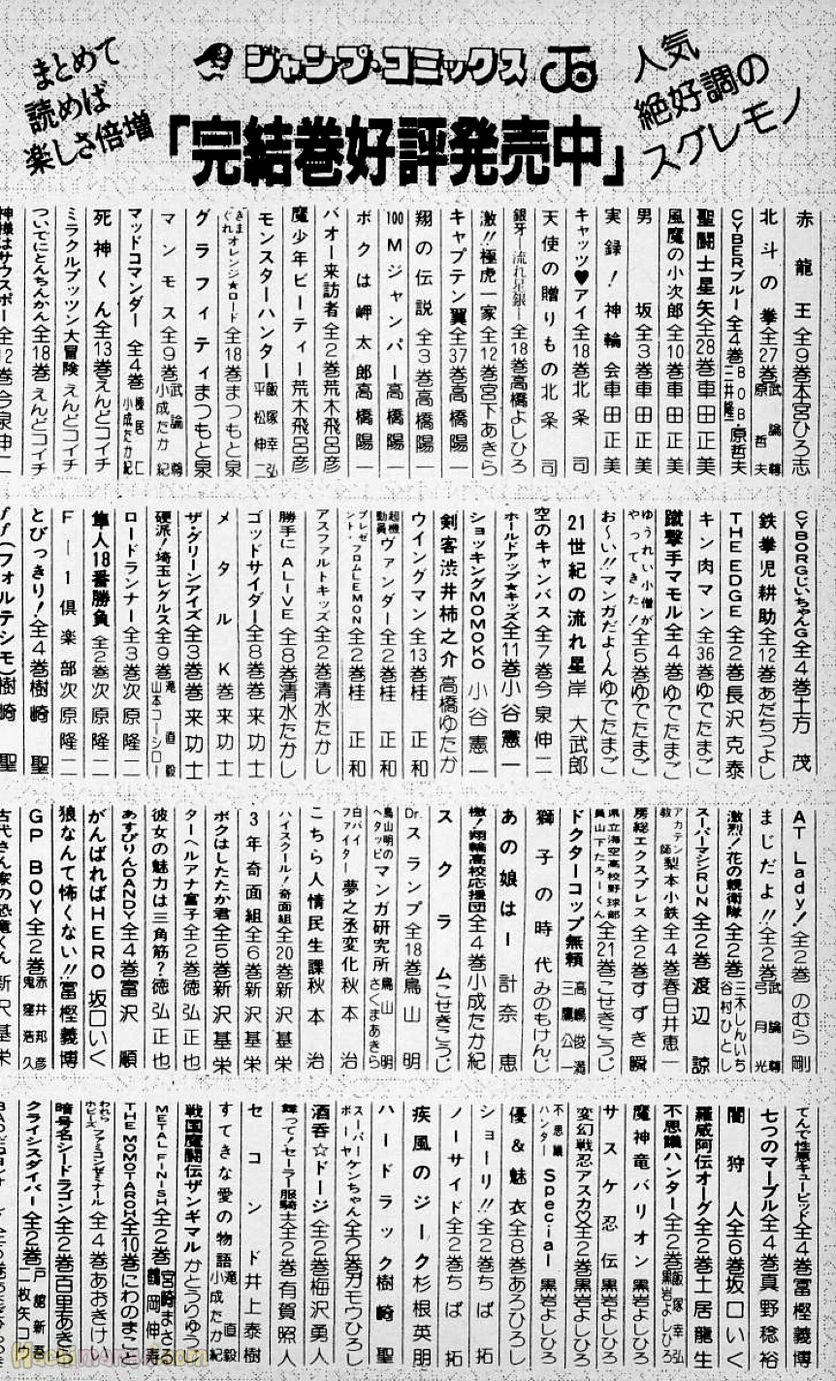 まとめて
読めば
楽しさ倍増
ジャンプ・コミックス
人気
絶好調の
スグレモノ
「完結巻好評発売中」
赤龍王全9巻本宮ひろ志
北斗の拳全27巻武論尊 原哲夫
CYBERブルー全4巻BOB・原哲夫 三井隆一
聖闘士星矢全28巻車田正美
風魔の小次郎全10巻車田正美
男坂全3巻車田正美
実録！神輪会車田正美
キャッツ♥アイ全18巻北条司
天使の贈りもの北条司
銀牙―流れ星銀―全18巻高橋よしひろ
激!!極虎一家全12巻宮下あきら
キャプテン翼全37巻高橋陽一
翔の伝説全3巻高橋陽一
100Mジャンパー高橋陽一
ボクは岬太郎高橋陽一
バオー来訪者全2巻荒木飛呂彦
魔少年ビーティー荒木飛呂彦
モンスターハンター飯塚幸弘 平松伸二
きまぐれオレンジ☆ロード全18巻まつもと泉
グラフィティまつもと泉
マンモス全9巻武論尊 小成たか紀
マッドコマンダー全4巻榛居仁 小成たか紀
死神くん全13巻えんどコイチ
ミラクルプッツン大冒険えんどコイチ
ついでにとんちんかん全18巻えんどコイチ
神様はサウスポー全12巻今泉伸二
CYBORGじいちゃんG全4巻土方茂
鉄拳児耕助全12巻あだちつよし
THE EDGE全2巻長沢克泰
キン肉マン全36巻ゆでたまご
蹴撃手マモル全4巻ゆでたまご
ゆうれい小僧がやってきた！全5巻ゆでたまご
お〜い!!マンガだよ〜んゆでたまご
21世紀の流れ星岸大武郎
空のキャンバス全7巻今泉伸二
ホールドアップ★キッズ全11巻小谷憲一
ショッキングMOMOKO小谷憲一
剣客渋井柿之介高橋ゆたか
ウイングマン全13巻桂正和
超機動員ヴァンダー全2巻桂正和
プレゼント・フロムLEMON全2巻桂正和
アスファルトキッズ全2巻清水たかし
勝手にALIVE全8巻清水たかし
ゴッドサイダー全8巻巻来功士
メタルK巻来功士
ザ・グリーンアイズ全3巻巻来功士
硬派！埼玉レグルス全9巻滝直毅 山本コーシロー
ロードランナー全3巻次原隆二
隼人18番勝負全2巻次原隆二
F―1倶楽部次原隆二
とびっきり！全4巻樹崎聖
ff(フォルテシモ)樹崎聖
AT Lady！全2巻のむら剛
まじだよ!!全2巻武論尊 弓月光
激烈！花の親衛隊全2巻三木しんいち 谷村ひとし
スーパーマシンRUN全2巻渡辺諒
アカテン教師梨本小鉄全4巻春日井恵一
房総エクスプレス全2巻すずき瞬
県立海空高校野球部員山下たろーくん全21巻こせきこうじ
ドクターコップ無頼高嶋俊満 三鷹公一
獅子の時代みのもけんじ
あの娘はー計奈恵
檄！翔輪高校応援団全4巻小成たか紀
スクラムこせきこうじ
Dr.スランプ全18巻鳥山明
鳥山明のヘタッピマンガ研究所鳥山明 さくまあきら
白バイファイター夢之丞変化秋本治
こちら人情民生課秋本治
ハイスクール！奇面組全20巻新沢基栄
3年奇面組全6巻新沢基栄
ボクはしたたか君全5巻新沢基栄
ターヘルアナ富子全2巻徳弘正也
彼女の魅力は三角筋？徳弘正也
あすぴりんDANDY全4巻富沢順
がんばればHERO坂口いく
狼なんて怖くない!!冨樫義博
GP BOY全2巻赤井邦彦 鬼窪浩久
古代さん家の恐竜くん新沢基栄
てんで性悪キューピッド全4巻冨樫義博
七つのマーブル全4巻真野稔裕
闇狩人全6巻坂口いく
羅威阿伝オーグ全2巻土居龍生
不思議ハンター全2巻飯塚幸弘 黒岩よしひろ
魔神竜バリオン黒岩よしひろ
サスケ忍伝黒岩よしひろ
変幻戦忍アスカ♡全2巻黒岩よしひろ
不思議ハンターSpecial黒岩よしひろ
優&魅衣全8巻あろひろし
ショーリ!!全2巻ちば拓
ノーサイド全2巻ちば拓
疾風のジーク杉根英朋
ハードラック樹崎聖
スーパーボーヤケンちゃん全2巻ガモウひろし
酒呑☆ドージ全2巻梅沢勇人
舞って！セーラー服騎士全2巻有賀照人
セコンド井上泰樹
すてきな愛の物語滝直毅 小成たか紀
戦国魔闘伝ザンギマルかとうりゅうの
METAL FINISH全2巻宮崎まさる 鶴岡伸寿
THE MOMOTAROH全10巻にわのまこと
われらホビーズファミコンゼミナール全4巻あおきけい
暗号名シードラゴン全2巻百里あきら
クライシスダイバー全2巻戸舘新吾 一枚矢コウ